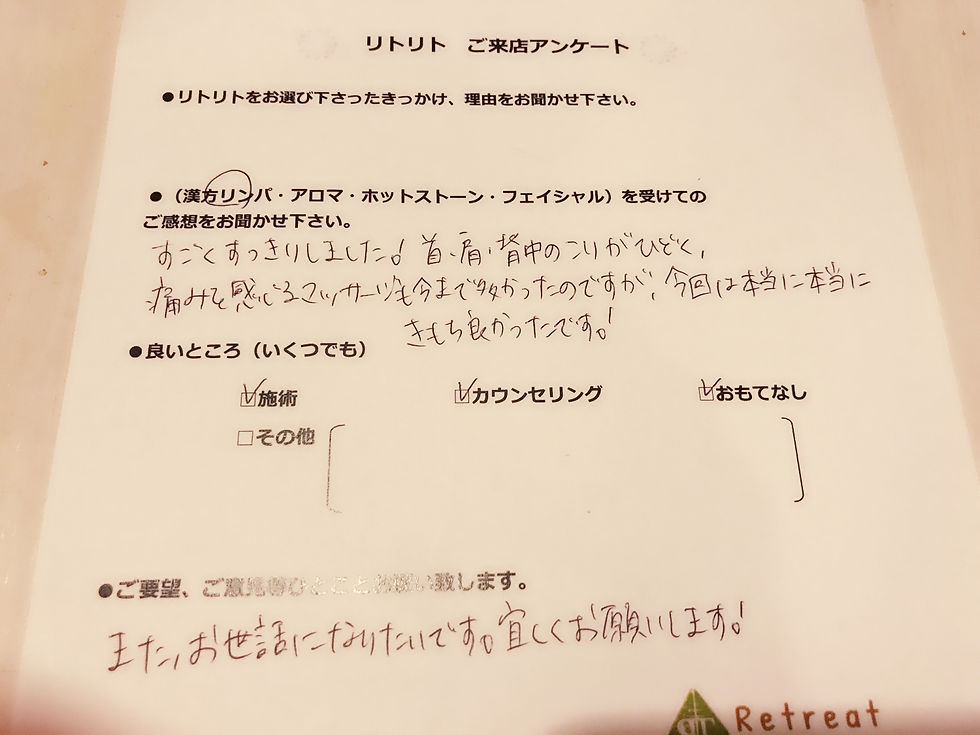 リトリト ご来店アンケート
●リトリトをお選び下さったきっかけ、理由をお聞かせ下さい。
●（漢方リンパ・アロマ・ホットストーン・フェイシャル）を受けての
ご感想をお聞かせ下さい。
すごくすっきりしました! 首、肩、背中のこりがひどく、
痛みを感じるマッサージも今まで多かったのですが、今回は本当に本当に
きもち良かったです。!
●良いところ（いくつでも）
☑施術 ☑カウンセリング ☑おもてなし
□その他
●ご要望、ご意見等ひとことお願い致します。
また、お世話になりたいです。宜しくお願いします!
Retreat